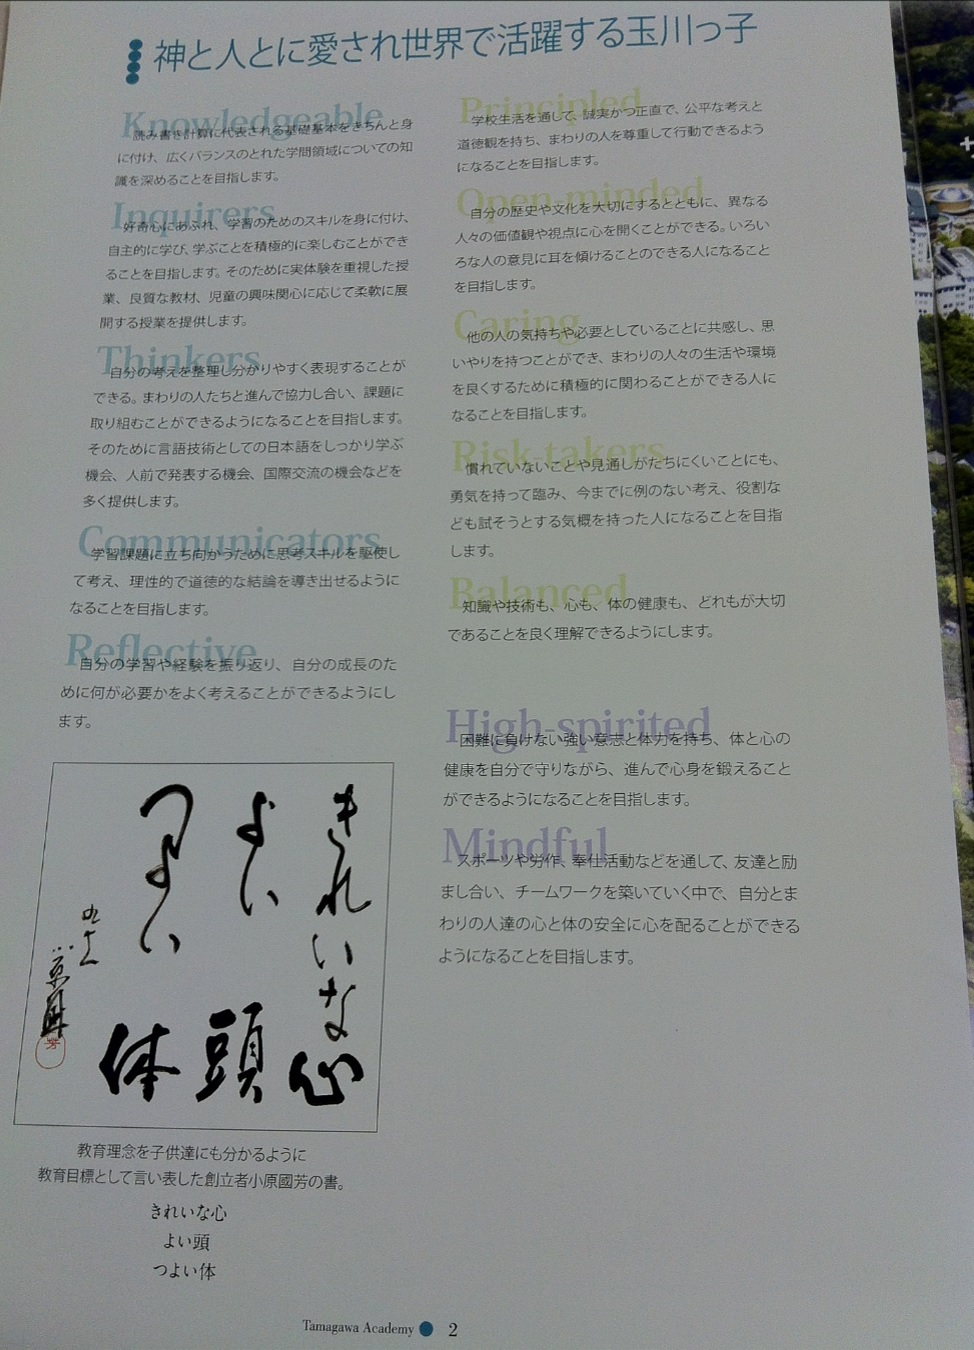 神と人とに愛され世界で活躍する玉川っ子
Knowledgeable
読み書き計算に代表される基礎基本をきちんと身
に付け、広くバランスのとれた学問領域についての知
識を深めることを目指します。
Inquirers
好奇心にあふれ、学習のためのスキルを身に付け、
自主的に学び、学ぶことを積極的に楽しむことができ
ることを目指します。そのために実体験を重視した授
業、良質な教材、児童の興味関心に応じて柔軟に展
開する授業を提供します。
Thinkers
自分の考えを整理し分かりやすく表現することが
できる。まわりの人たちと進んで協力し合い、課題に
取り組むことができるようになることを目指します。
そのために言語技術としての日本語をしっかり学ぶ
機会、人前で発表する機会、国際交流の機会などを
多く提供します。
Communicators
学習課題に立ち向かうために思考スキルを駆使し
て考え、理性的で道徳的な結論を導き出せるように
なることを目指します。
Reflective
自分の学習や経験を振り返り、自分の成長のた
めに何が必要かをよく考えることができるようにし
ます。
きれいな心
よい頭
つよい体
教育理念を子供達にも分かるように
教育目標として言い表した創立者小原國芳の書。
きれいな心
よい頭
つよい体
Principled
学校生活を通して、誠実かつ正直で、公平な考えと
道徳観を持ち、まわりの人を尊重して行動できるよう
になることを目指します。
Open-minded
自分の歴史や文化を大切にするとともに、異なる
人々の価値観や視点に心を開くことができる。いろい
ろな人の意見に耳を傾けることのできる人になること
を目指します。
Caring
他の人の気持ちや必要としていることに共感し、思
いやりを持つことができ、まわりの人々の生活や環境
を良くするために積極的に関わることができる人に
なることを目指します。
Risk-takers
慣れていないことや見通しがたちにくいことにも、
勇気を持って臨み、今までに例のない考え、役割な
ども試そうとする気概を持った人になることを目指
します。
Balanced
知識や技術も、心も、体の健康も、どれもが大切
であることを良く理解できるようにします。
High-spirited
困難に負けない強い意志と体力を持ち、体と心の
健康を自分で守りながら、進んで心身を鍛えること
ができるようになることを目指します。
Mindful
スポーツや労作、奉仕活動などを通して、友達と励
まし合い、チームワークを築いていく中で、自分とま
わりの人達の心と体の安全に心を配ることができる
ようになることを目指します。
Tamagawa Academy 2